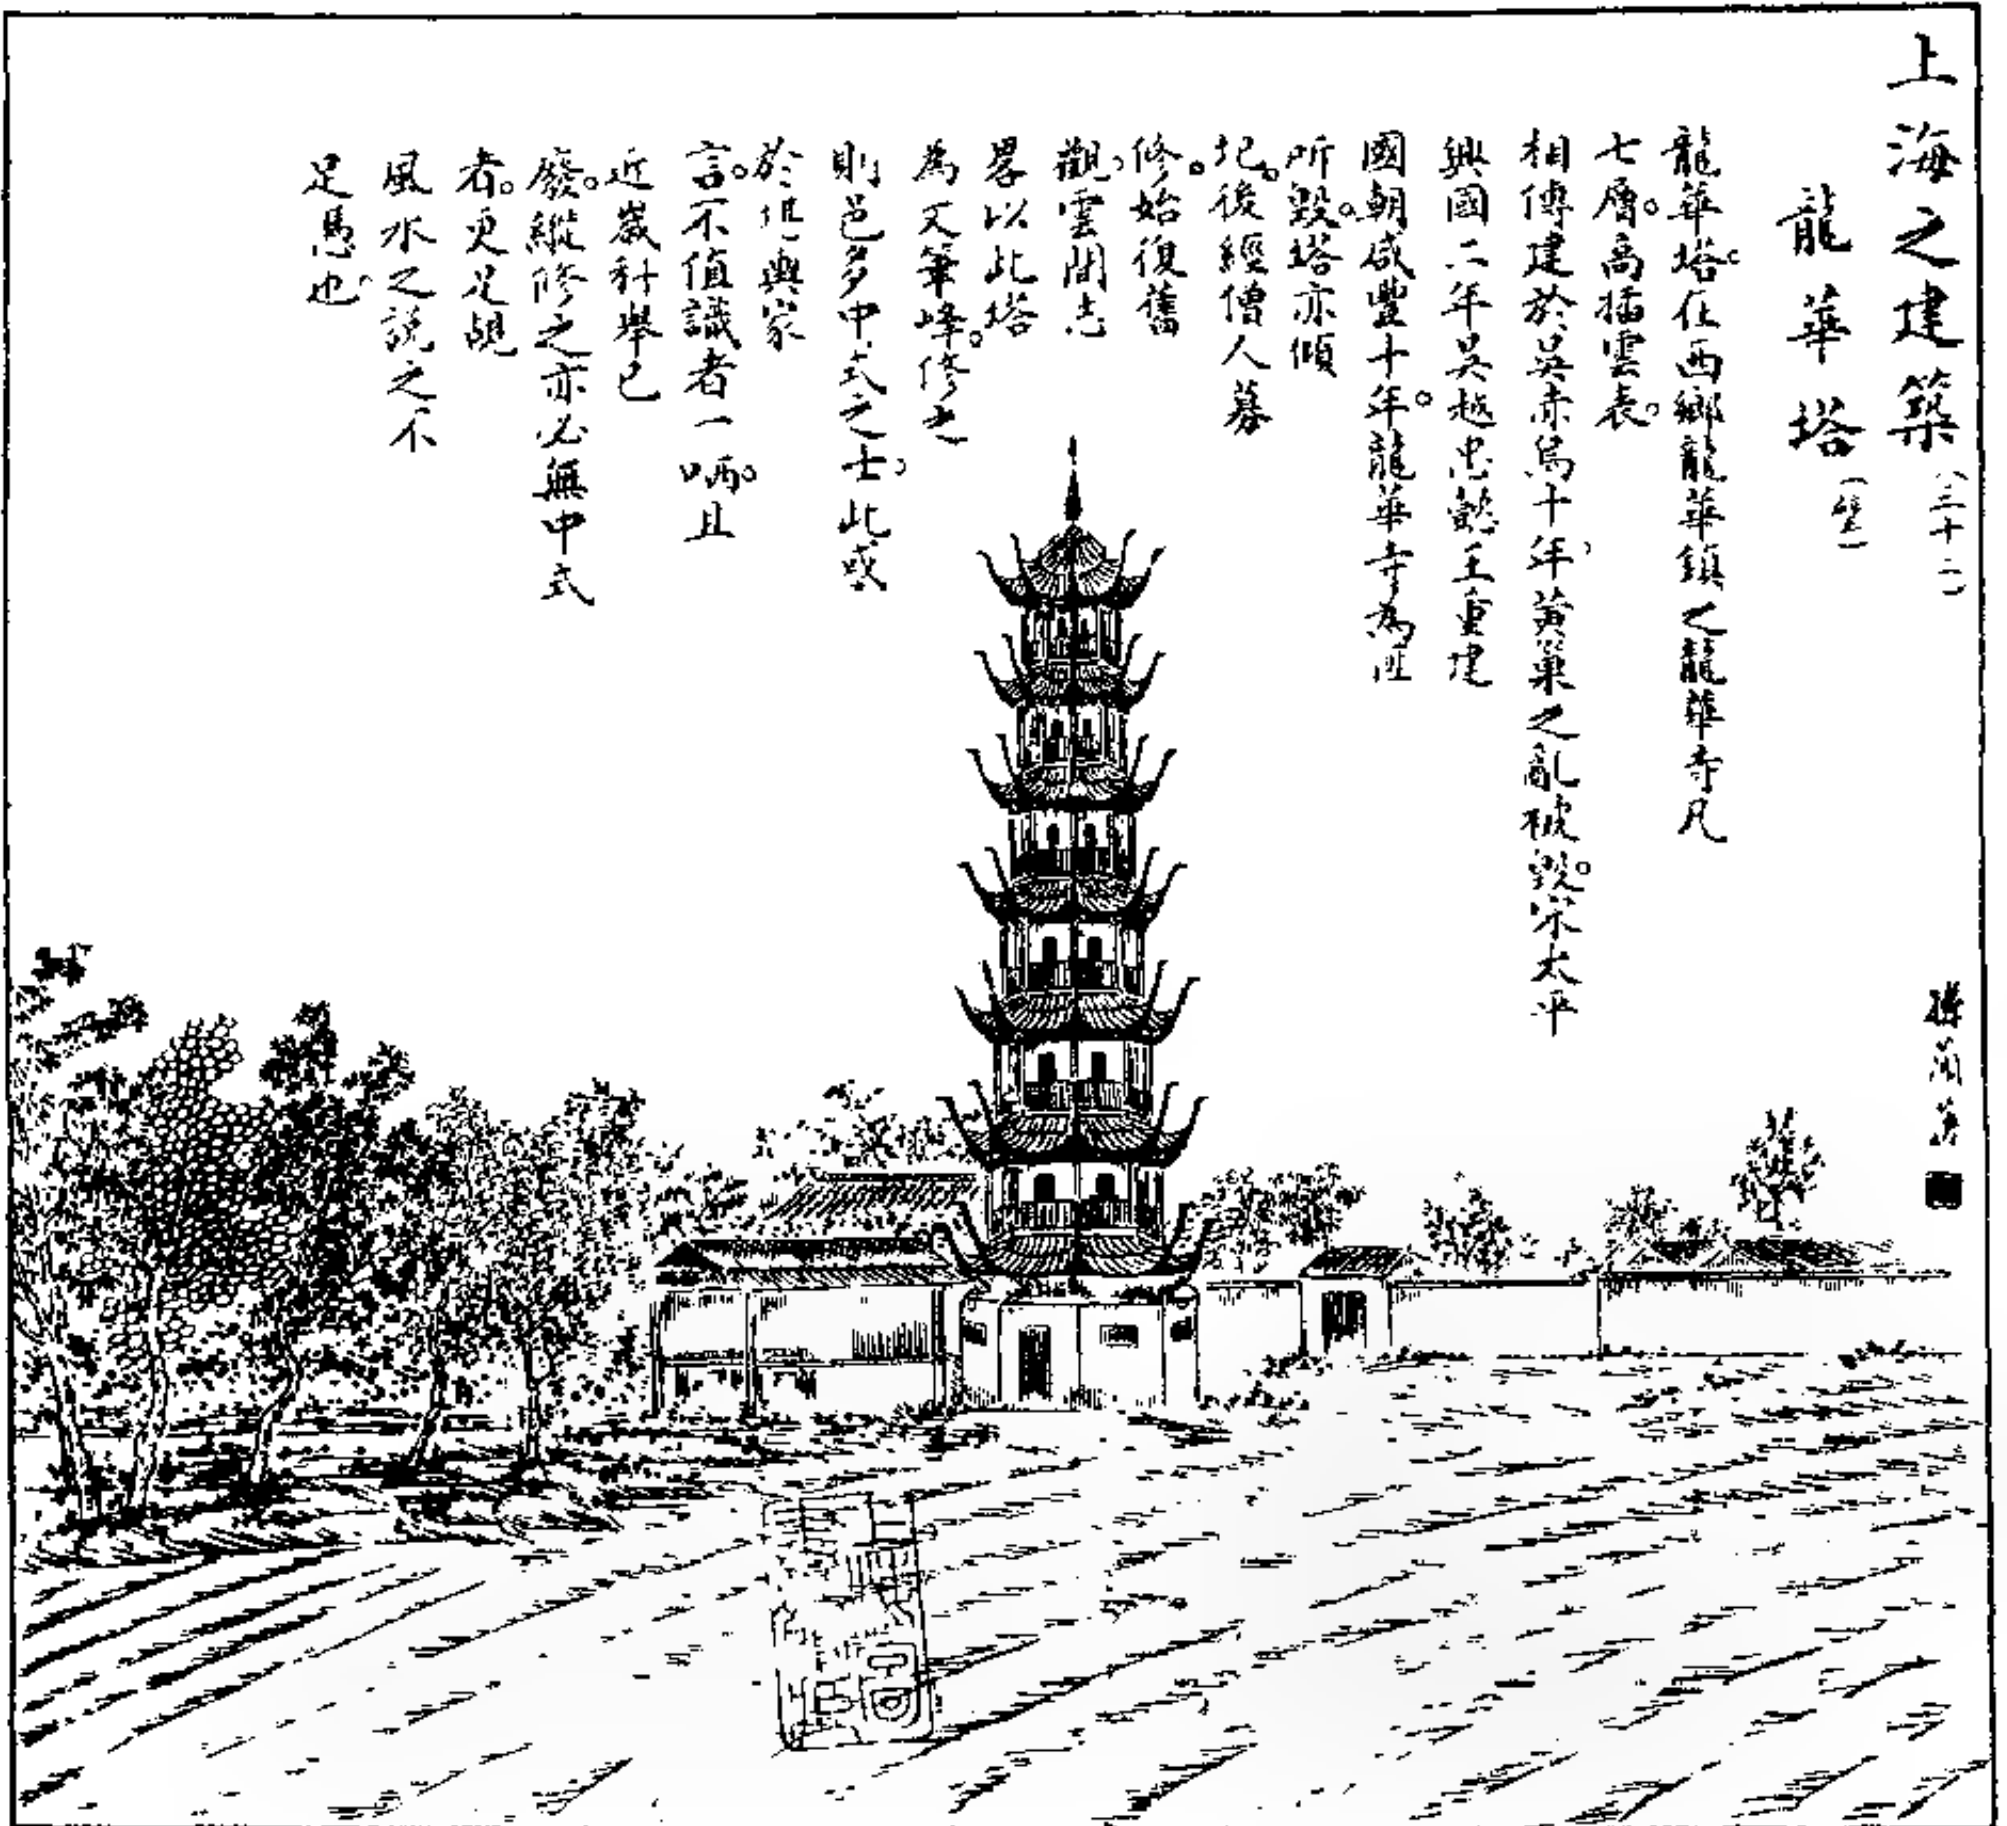 上海之建築（三十二）
龍華塔（壁）
龍華塔。在西鄉龍華鎮之龍華寺凡
七層。高插雲表。
相傳建於吳赤烏十年、黃巢之亂被毀。宋太平
興國二年吳越忠懿王重建
國朝咸豐十年。龍華寺為匪
所毀。塔亦傾
圮。後經僧人募
修。始復舊
觀、雲間志
畧以此塔
為文筆峰。修之
則邑多中式之士、此或
於堪輿家
言。不值識者一哂。且
近歲科舉已
廢。縱修之亦必無中式
者。更足覘
風水之說之不
足憑也。